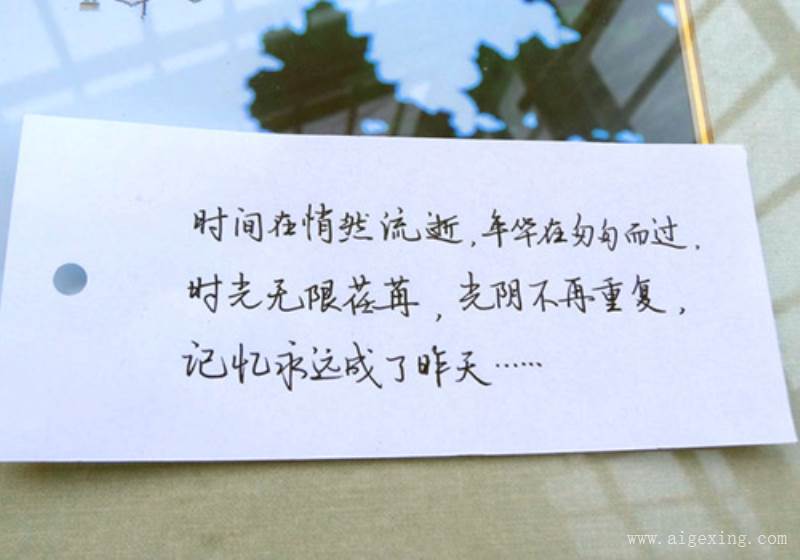 时间在悄然流逝,年华在匆匆而过.
时光无限荏苒,光阴不再重复,
记忆永远成了昨天……
www.aigexing.com